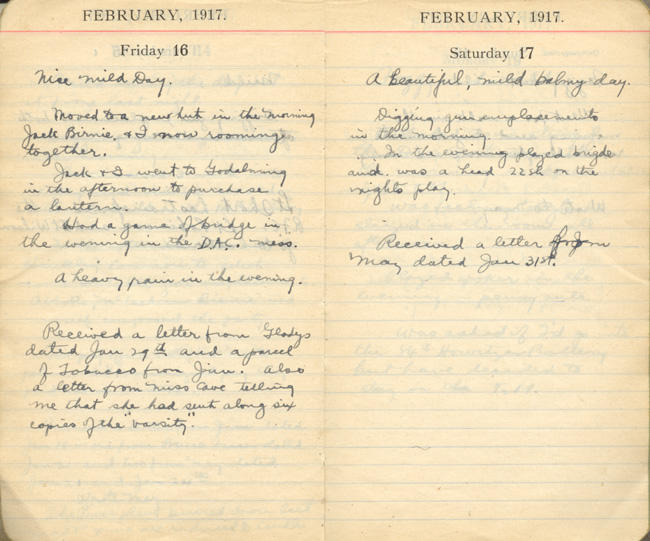 FEBRUARY, 1917.
Friday 16
Nice mild Day.
Moved to a new hut in the morning
Jack Birnie, & I now rooming
together.
Jack & I went to Godalming
in the afternoon to purchase
a lantern.
Had a game of bridge in
the evening in the D.A.C. mess.
A heavy rain in the evening.
Received a letter from Gladys
dated Jan 29th and a parcel
of Tobacco from Jim. Also
a letter from Miss Cave telling
me that she had sent along six
copies of the "Varsity".
FEBRUARY, 1917.
Saturday 17
A beautiful, mild balmy day.
Digging gun emplacements
in the morning.
In the evening played bridge
and was a head 22sh on the
nights play.
Received a letter from
May dated Jan 31st.